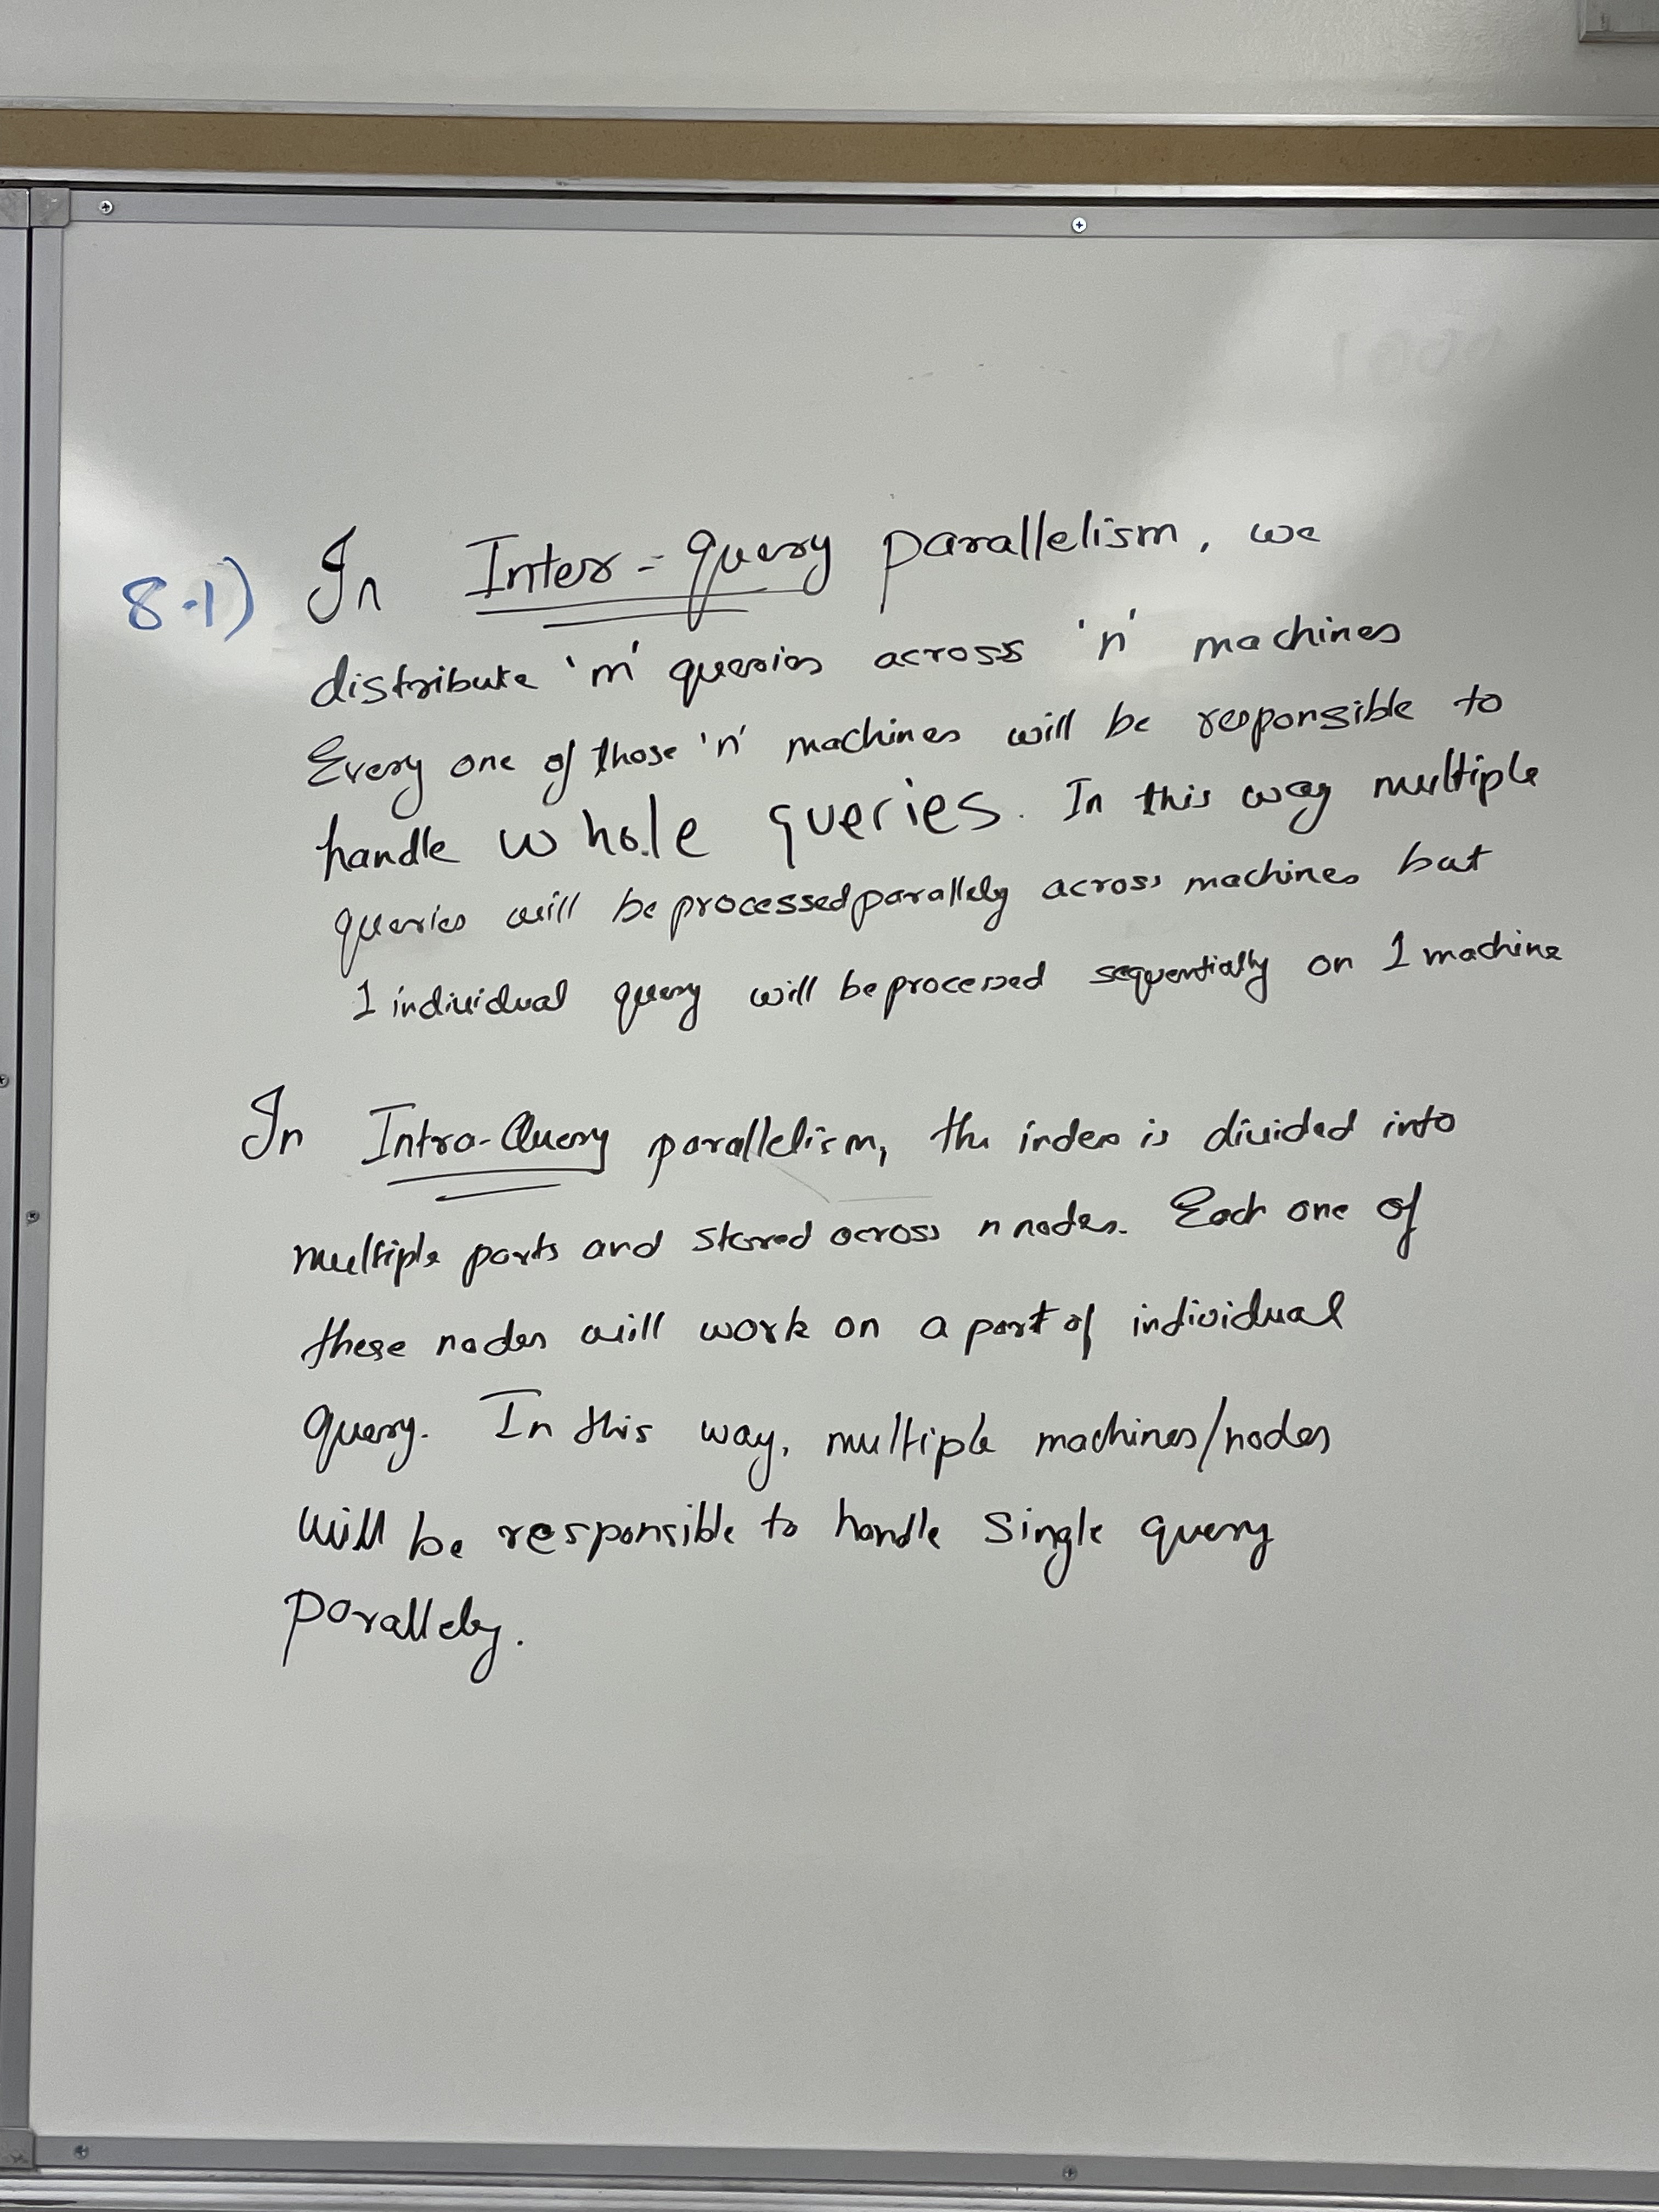 8.1) In Inter-query parallelism, we
distribute 'm' queries across 'n' machines
Every one of those 'n' machines will be responsible to
handle whole queries. In this way multiple
queries will be processed parallely across machines but
1 individual query will be processed sequentially on 1 machine
In Intra-Query parallelism, the index is divided into
multiple parts and stored across n nodes. Each one of
these nodes will work on a part of individual
query. In this way, multiple machines/nodes
will be responsible to handle single query
parallely.